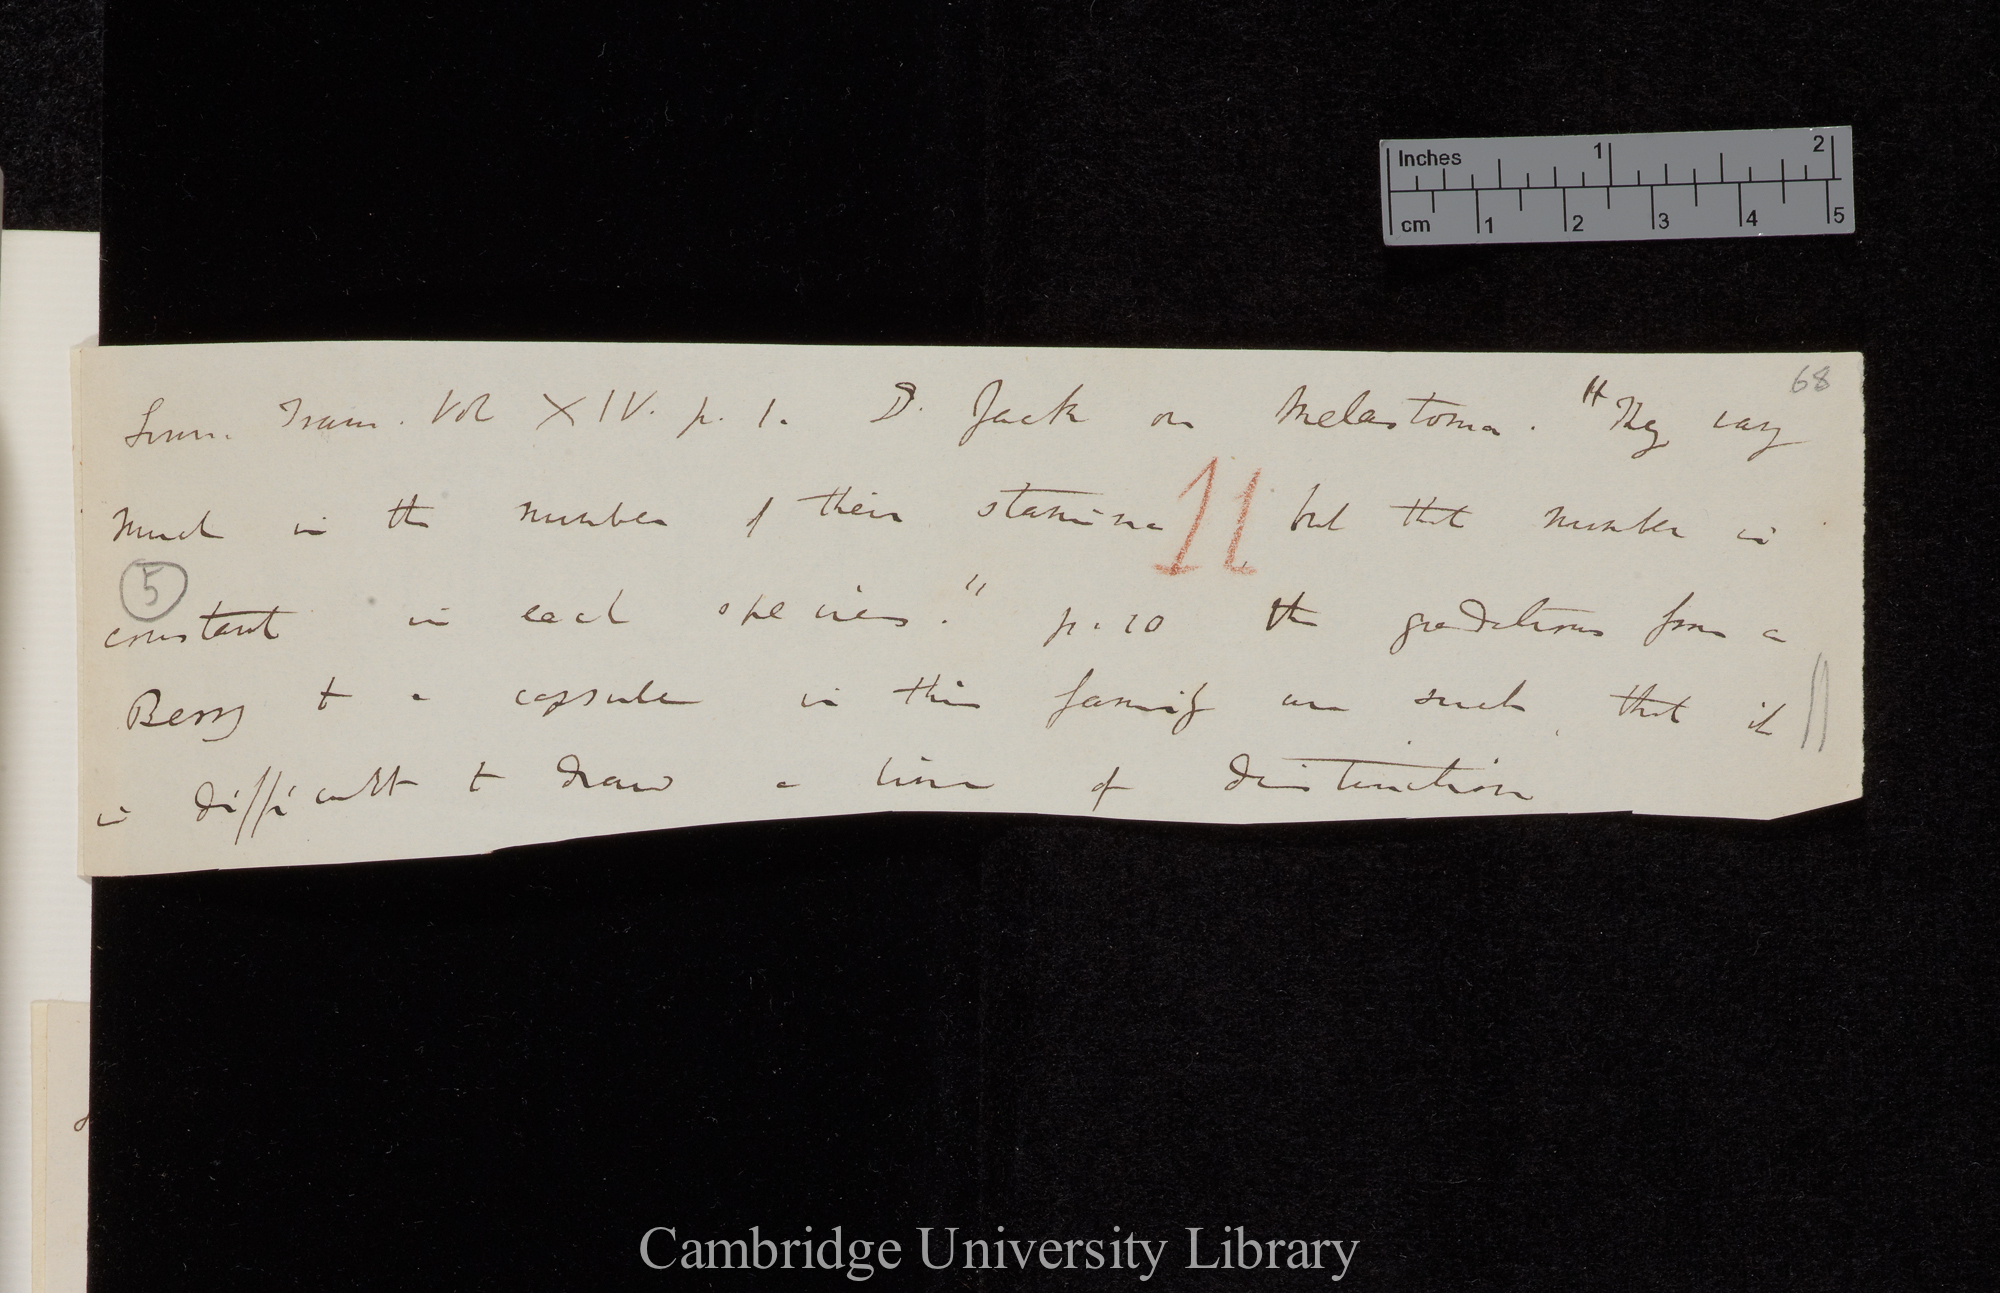 68
Linn. Trans. Vol XIV. p. 1. D. Jack on Melastoma. "They vary
much in the number of their stamina 11 but that number is
5
constant in each species." p. 20 the gradations from a
Berry to a capsule in this family are such that it
is difficult to draw a line of distinction
Inches 1 2
cm 1 2 3 4 5
Cambridge University Library